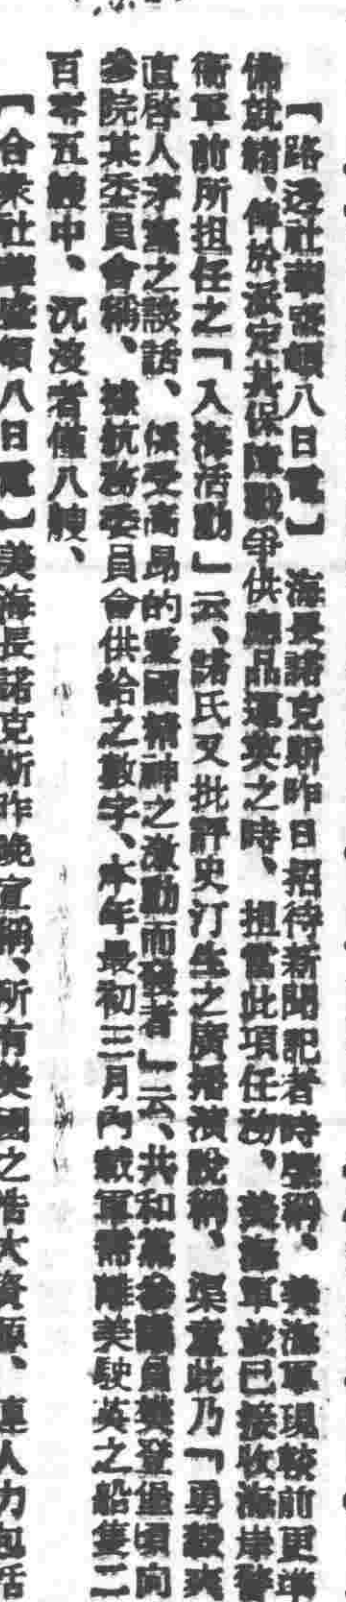 【路透社華盛頓八日電】海長諾克斯昨日招待新聞記者時聲稱、美海軍現較前更準
備就緒、俾於派定其保障戰爭供應品運英之時、担當此項任務、美海軍並已接收海岸警
衛軍前所担任之「入海活動」云、諾氏又批評史汀生之廣播演說稱、渠意此乃「勇毅爽
直啓人茅塞之談話、係受高昂的愛國精神之激動而發者」云、共和黨參議員樊登堡頃向
參院某委員會稱、據航務委員會供給之數字、本年最初三月內載軍需離美駛英之船隻二
百零五艘中、沉沒者僅八艘、
【合衆社華盛頓八日電】美海長諾克斯昨晚宣稱、所有美國之浩大資源、連人力包括